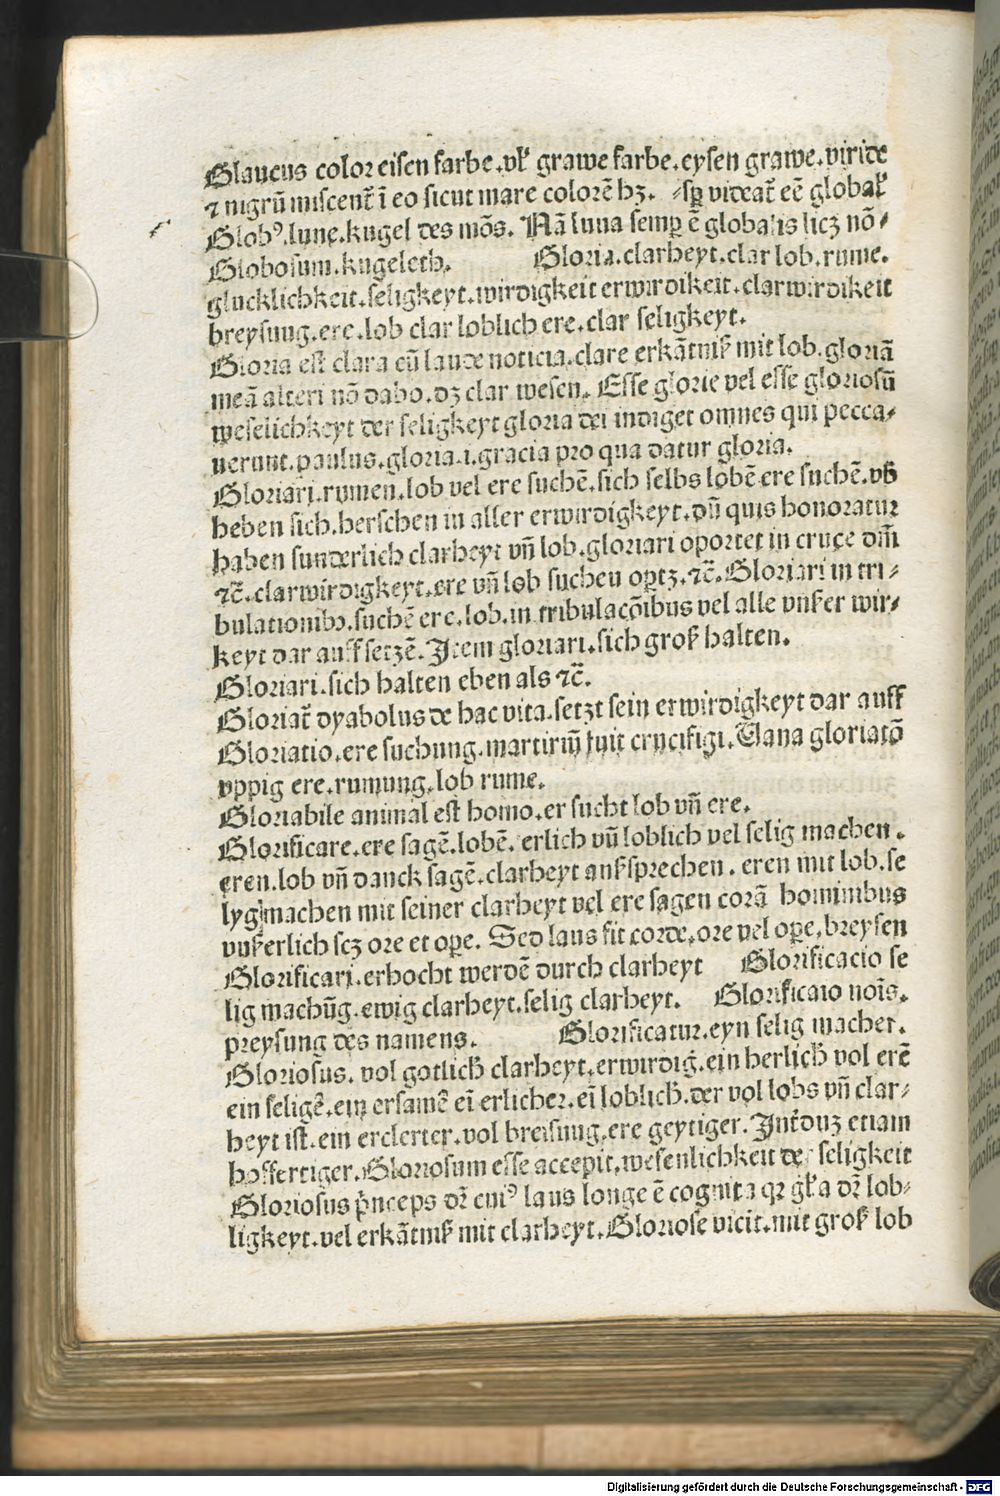 Glaucus color eisen farbe.vł grawe farbe.eysen grawe.viride
⁊ nigrū miscent̄ ī eo sicut mare colorē hꝫ. ⸗sꝑ videat̄ eē globał
Globꝰ.lune.kugel des mōs. Nā luna semꝑ ē globalis licꝫ nō⸗
Globosum.kugeleth. Gloria.clarheyt.clar lob.rume.
glucklichkeit.seligkeyt.wirdigkeit erwirdikeit.clarwirdikeit
breysung.ere.lob clar loblich ere.clar seligkeyt.
Gloria est clara cū laude noticia.clare erkātniß mit lob.gloriā
meā alteri nō dabo.dꝫ clar wesen. Esse glorie vel esse gloriosū
weselichkeyt der seligkeyt gloria dei indiget omnes qui pecca⸗
uerunt.paulus.gloria.i.gracia pro qua datur gloria.
Gloriari.rumen.lob vel ere suchē.sich selbs lobē ere suchē.vb̄
heben sich.herschen in aller erwirdigkeyt.dū quis honoratur
haben sunderlich clarheyt vn̄ lob.gloriari oportet in cruce dm̄i
⁊c̄.clarwirdigkeyt.ere vn̄ lob suchen oꝑtꝫ.⁊c̄.Gloriari in tri⸗
bulationibꝫ.suchē ere.lob.in tribulacōibus vel alle vnßer wir⸗
keyt dar auff setzē. Item gloriari.sich groß halten.
Gloriari.sich halten eben als ⁊c̄.
Gloriat̄ dyabolus de hac vita.setzt sein erwirdigkeyt dar auff
Gloriatio.ere suchung.martiriū fuit crucifigi.Vana gloriatō
vppig ere.rumung.lob rume.
Gloriabile animal est homo.er sucht lob vn̄ ere.
Glorificare.ere sagē.lobē.erlich vn̄ loblich vel selig machen.
eren.lob vn̄ danck sagē.clarheyt außsprechen. eren mit lob.se
lyg machen mit seiner clarheyt vel ere sagen corā hominibus
vußerlich scꝫ ore et oꝑe. Sed laus fit corde.ore vel oꝑe.breysen
Glorificari.erhocht werdē durch clarheyt Glorificacio se
lig machūg.ewig clarheyt.selig clarheyt. Glorificaio nōis.
preysung des namens. Glorificatur.eyn selig macher.
Gloriosus. vol gotlich clarheyt.erwirdig.ein herlich vol erē
ein seligē.ein ersamē eī erlicher.eī loblich.der vol lobs vn̄ clar⸗
heyt ist.ein erclerter.vol breisung.ere geytiger.Int̄duꝫ etiam
hoffertiger.Gloriosum esse accepit.wesenlichkeit der seligkeit
Gloriosus p̄nceps dr̄ cuiꝰ laus longe ē cognita qꝛ gł̄a dr̄ lob⸗
ligkeyt.vel erkātniß mit clarheyt.Gloriose vicit.mit groß lob
Digitalisierung gefördert durch die Deutsche Forschungsgemeinschaft - DFG